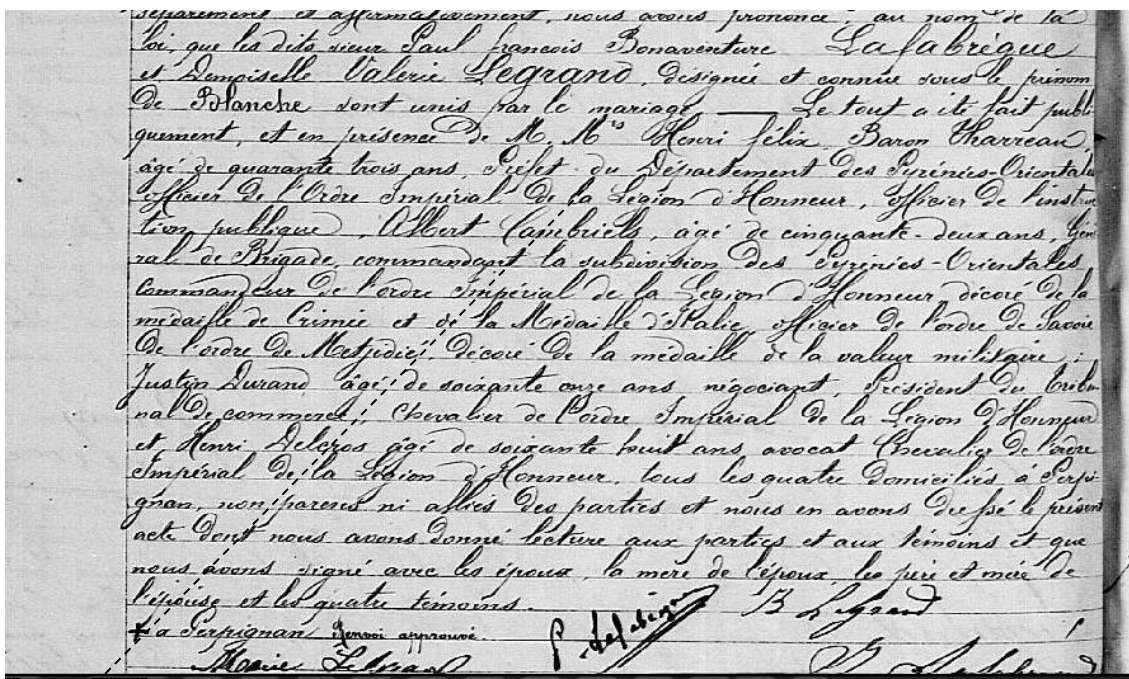 séparément et affirmativement, nous avons prononcé, au nom de la
loi, que les dits sieur Paul françois Bonaventure Lafabrègue
et Demoiselle Valerie Legrand, désignée et connue sous le prénom
de Blanche sont unis par le mariage. — Le tout a été fait publi-
quement, et en présence de M. Mrs Henri félix, Baron Tharreau,
âgé de quarante trois ans, Préfet du Département des Pyrénées-Orientales
officier de l'Ordre Impérial de la Légion d'Honneur, officier de l'instruc
tion publique, Albert Cambriels, âgé de cinquante-deux ans, Géné
ral de Brigade, commandant la subdivision des Pyrénées-Orientales
Commandeur de l'ordre Impérial de la Légion d'Honneur décoré de la
médaille de Crimée et de la Médaille d'Italie, officier de l'ordre de Savoie
de l'ordre de Metjidié, décoré de la médaille de la valeur militaire ;
Justin Durand âgé de soixante onze ans, négociant, Président du Tribu
nal de commerce, Chevalier de l'ordre Impérial de la Légion d'Honneur
et Henri Delcros âgé de soixante huit ans, avocat Chevalier de l'ordre
Impérial de la Légion d'Honneur, tous les quatre domiciliés à Perpi-
gnan, non parens ni alliés des parties et nous en avons dressé le présent
acte dont nous avons donné lecture aux parties et aux témoins et que
nous avons signé avec les époux, la mère de l'époux, les père et mère de
l'épouse et les quatre témoins. B Legrand
+ à Perpignan Renvoi approuvé. P. Lafabrègue
Marie Legrand